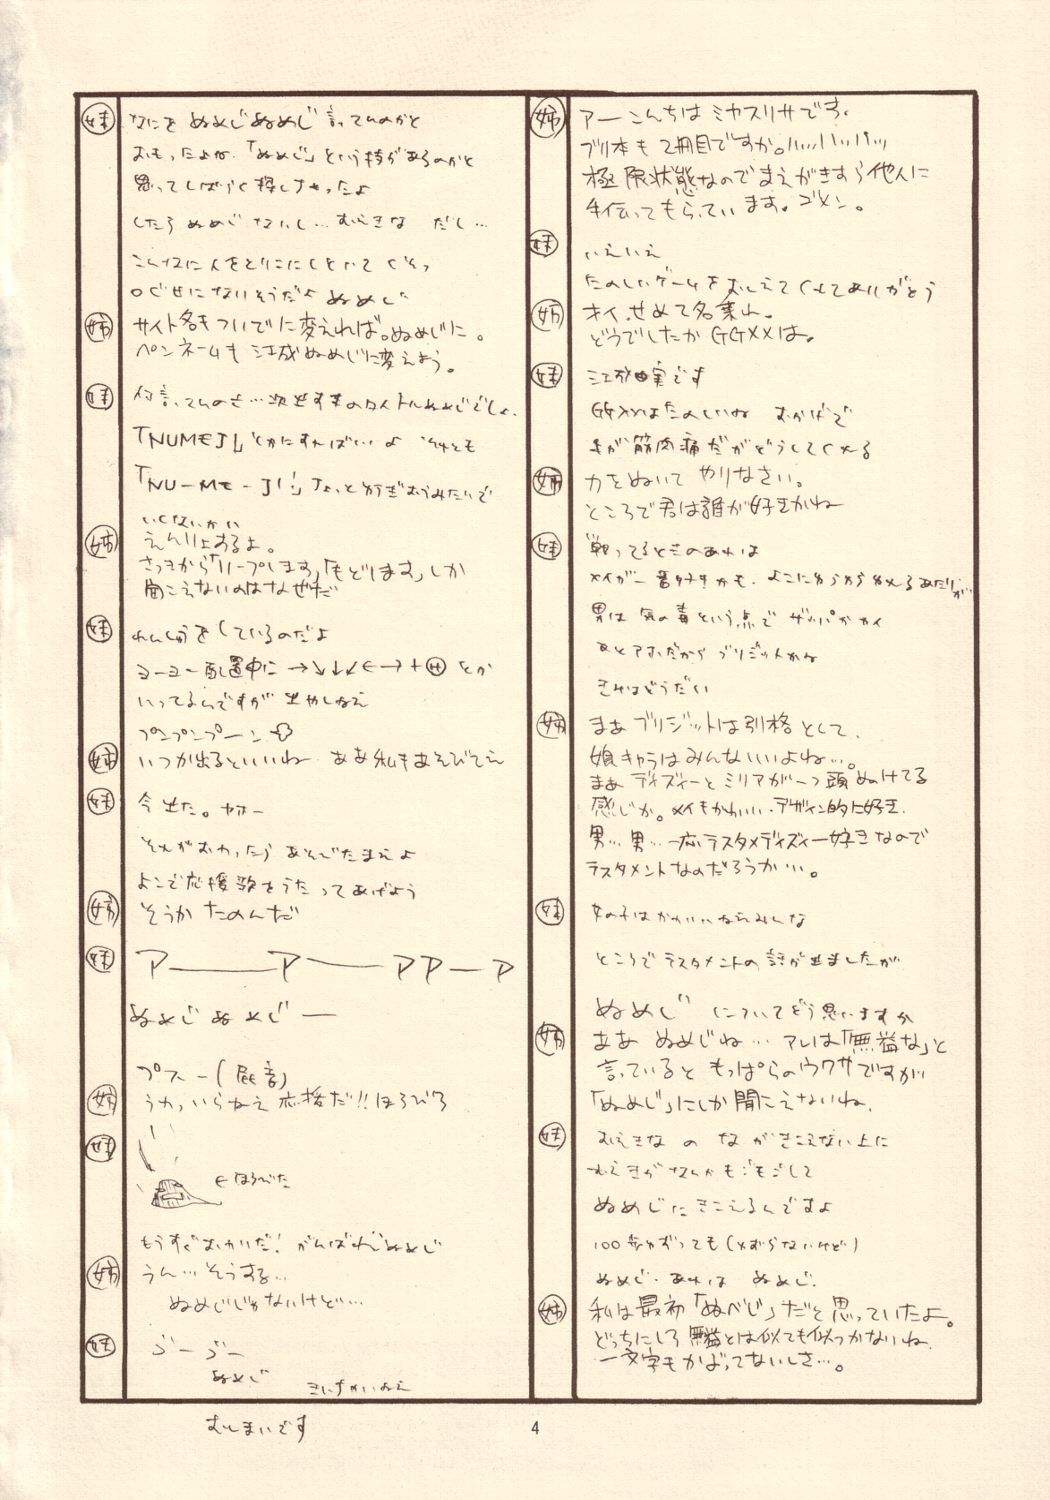 姉
アーこんちは ミヤスリサです。
ブリ本も2冊目ですか。ハッハッハッ
極限状態なのでまえがきすら他人に
手伝ってもらっています。ゴメン。
妹
いえいえ
たのしいゲームをおしえてくれてありがとう
姉
オイ、せめて名乗れ。
どうでしたか GGXXは。
妹
江成由実です
GGXXはたのしいね おかげで
手が筋肉痛だがどうしてくれる
姉
力をぬいて やりなさい。
ところで君は誰が好きかね
妹
戦ってるときのあれは
メイが一番好きかも、よこに
男は 気の毒という点で ザッパかカイ
あとアホだから ブリジットかな
きみはどうだい
姉
まあ ブリジットは別格として、
娘キャラはみんないいよね…。
まあ ディズィーと ミリアが一つ頭ぬけてる
感じか。メイもかわいい・デザイン的に好き。
男…男…一応テスタメディズィー好きなので
テスタメントなのだろうか…。
妹
女の子はかわいいねえみんな
ところで テスタメントの 話が出ましたが
ぬめじ についてどう思いますか
姉
ああ ぬめじね… アレは「無益な」と
言っていると もっぱらのウワサですが
「ぬめじ」にしか聞こえないね。
妹
むえきな の なが きこえない上に
むえきがなんかもごもごして
ぬめじにきこえるんですよ
100歩ゆずっても(ゆずらないけど)
ぬめじ・あれは ぬめじ。
姉
私は最初「ぬべじ」だと思っていたよ。
どっちにしろ無益とは似ても似つかないね
一文字もかぶってないしさ…。
妹
なにを ぬめじぬめじ 言ってんのかと
おもったよな、「ぬめじ」という技があるのかと
思ってしばらく探しちゃったよ
したら ぬめじ ないし… むえきな だし…
こんなに人をとりこにしといて
ロくせにないそうだよ ぬめじ
姉
サイト名もついでに変えれば。ぬめじに。
ペンネームも 江成ぬめじに変えよう。
妹
何言ってんのさ…次出す本のタイトルぬめじでしょ。
「NUMEJI」とかにすればいいよ それとも
「NU-ME-JI」
いくないかい
姉
えんりょするよ。
さっきから「リープします」「もどします」しか
聞こえないのはなぜだ
妹
れんしゅうをしているのだよ
ヨーヨー配置中に →↘↓↙←→+Ⓗ とか
いってるんですが 出やしねえ
プンプンプーン
姉
いつか出るといいね ああ 私もあそびてえ
妹
今 出た。ヤホー
それがおわったら あそびたまえよ
よこで応援歌をうたってあげよう
姉
そうか たのんだ
妹
ア――ア――アアーア
ぬめじ ぬめじ ―
プスー(屁音)
姉
うわっ いらねえ 応援だ!! ほろびろ
妹
←ほろびた
もうすぐおわりだ! がんばれ ぬめじ
姉
うん… そうする…
ぬめじじゃないけど…
妹
ぶーぶー
ぬめじ
おしまいです
4